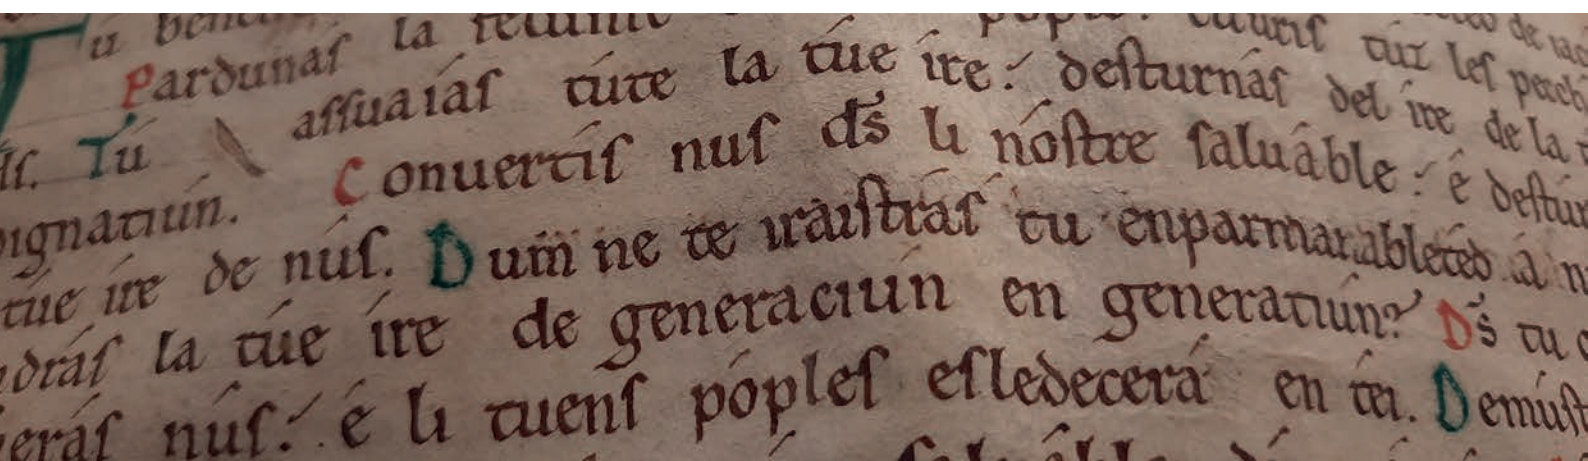 Pardunaſ la pople: cuuriſ tuz leſ pech
lſ. Tú aſſuaiáſ túte la túe íre: deſturnáſ del íre de la t
ignatiún. Conuertíſ nuſ dſ̄ li nóſtre ſaluáble: é deſtúr
túe íre de núſ. Dum ne te iraíſtráſ tu enparmanableted á n
dráſ la túe íre de generaciún en generatiún? Dſ̄ tu c
eráſ núſ: é li tuenſ pópleſ eſledecerá en téi. Demúſt